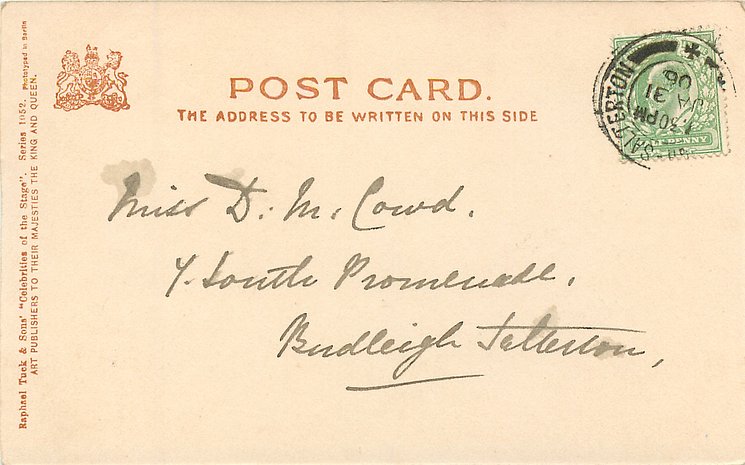 POST CARD.
THE ADDRESS TO BE WRITTEN ON THIS SIDE
Miss D. M. Cowd.
4. South Promenade,
Budleigh Salterton,
Raphael Tuck & Sons' "Celebrities of the Stage". Series 1052. Phototyped in Berlin
ART PUBLISHERS TO THEIR MAJESTIES THE KING AND QUEEN.
SALTERTON
1.30PM
JA 31
06
PENNY